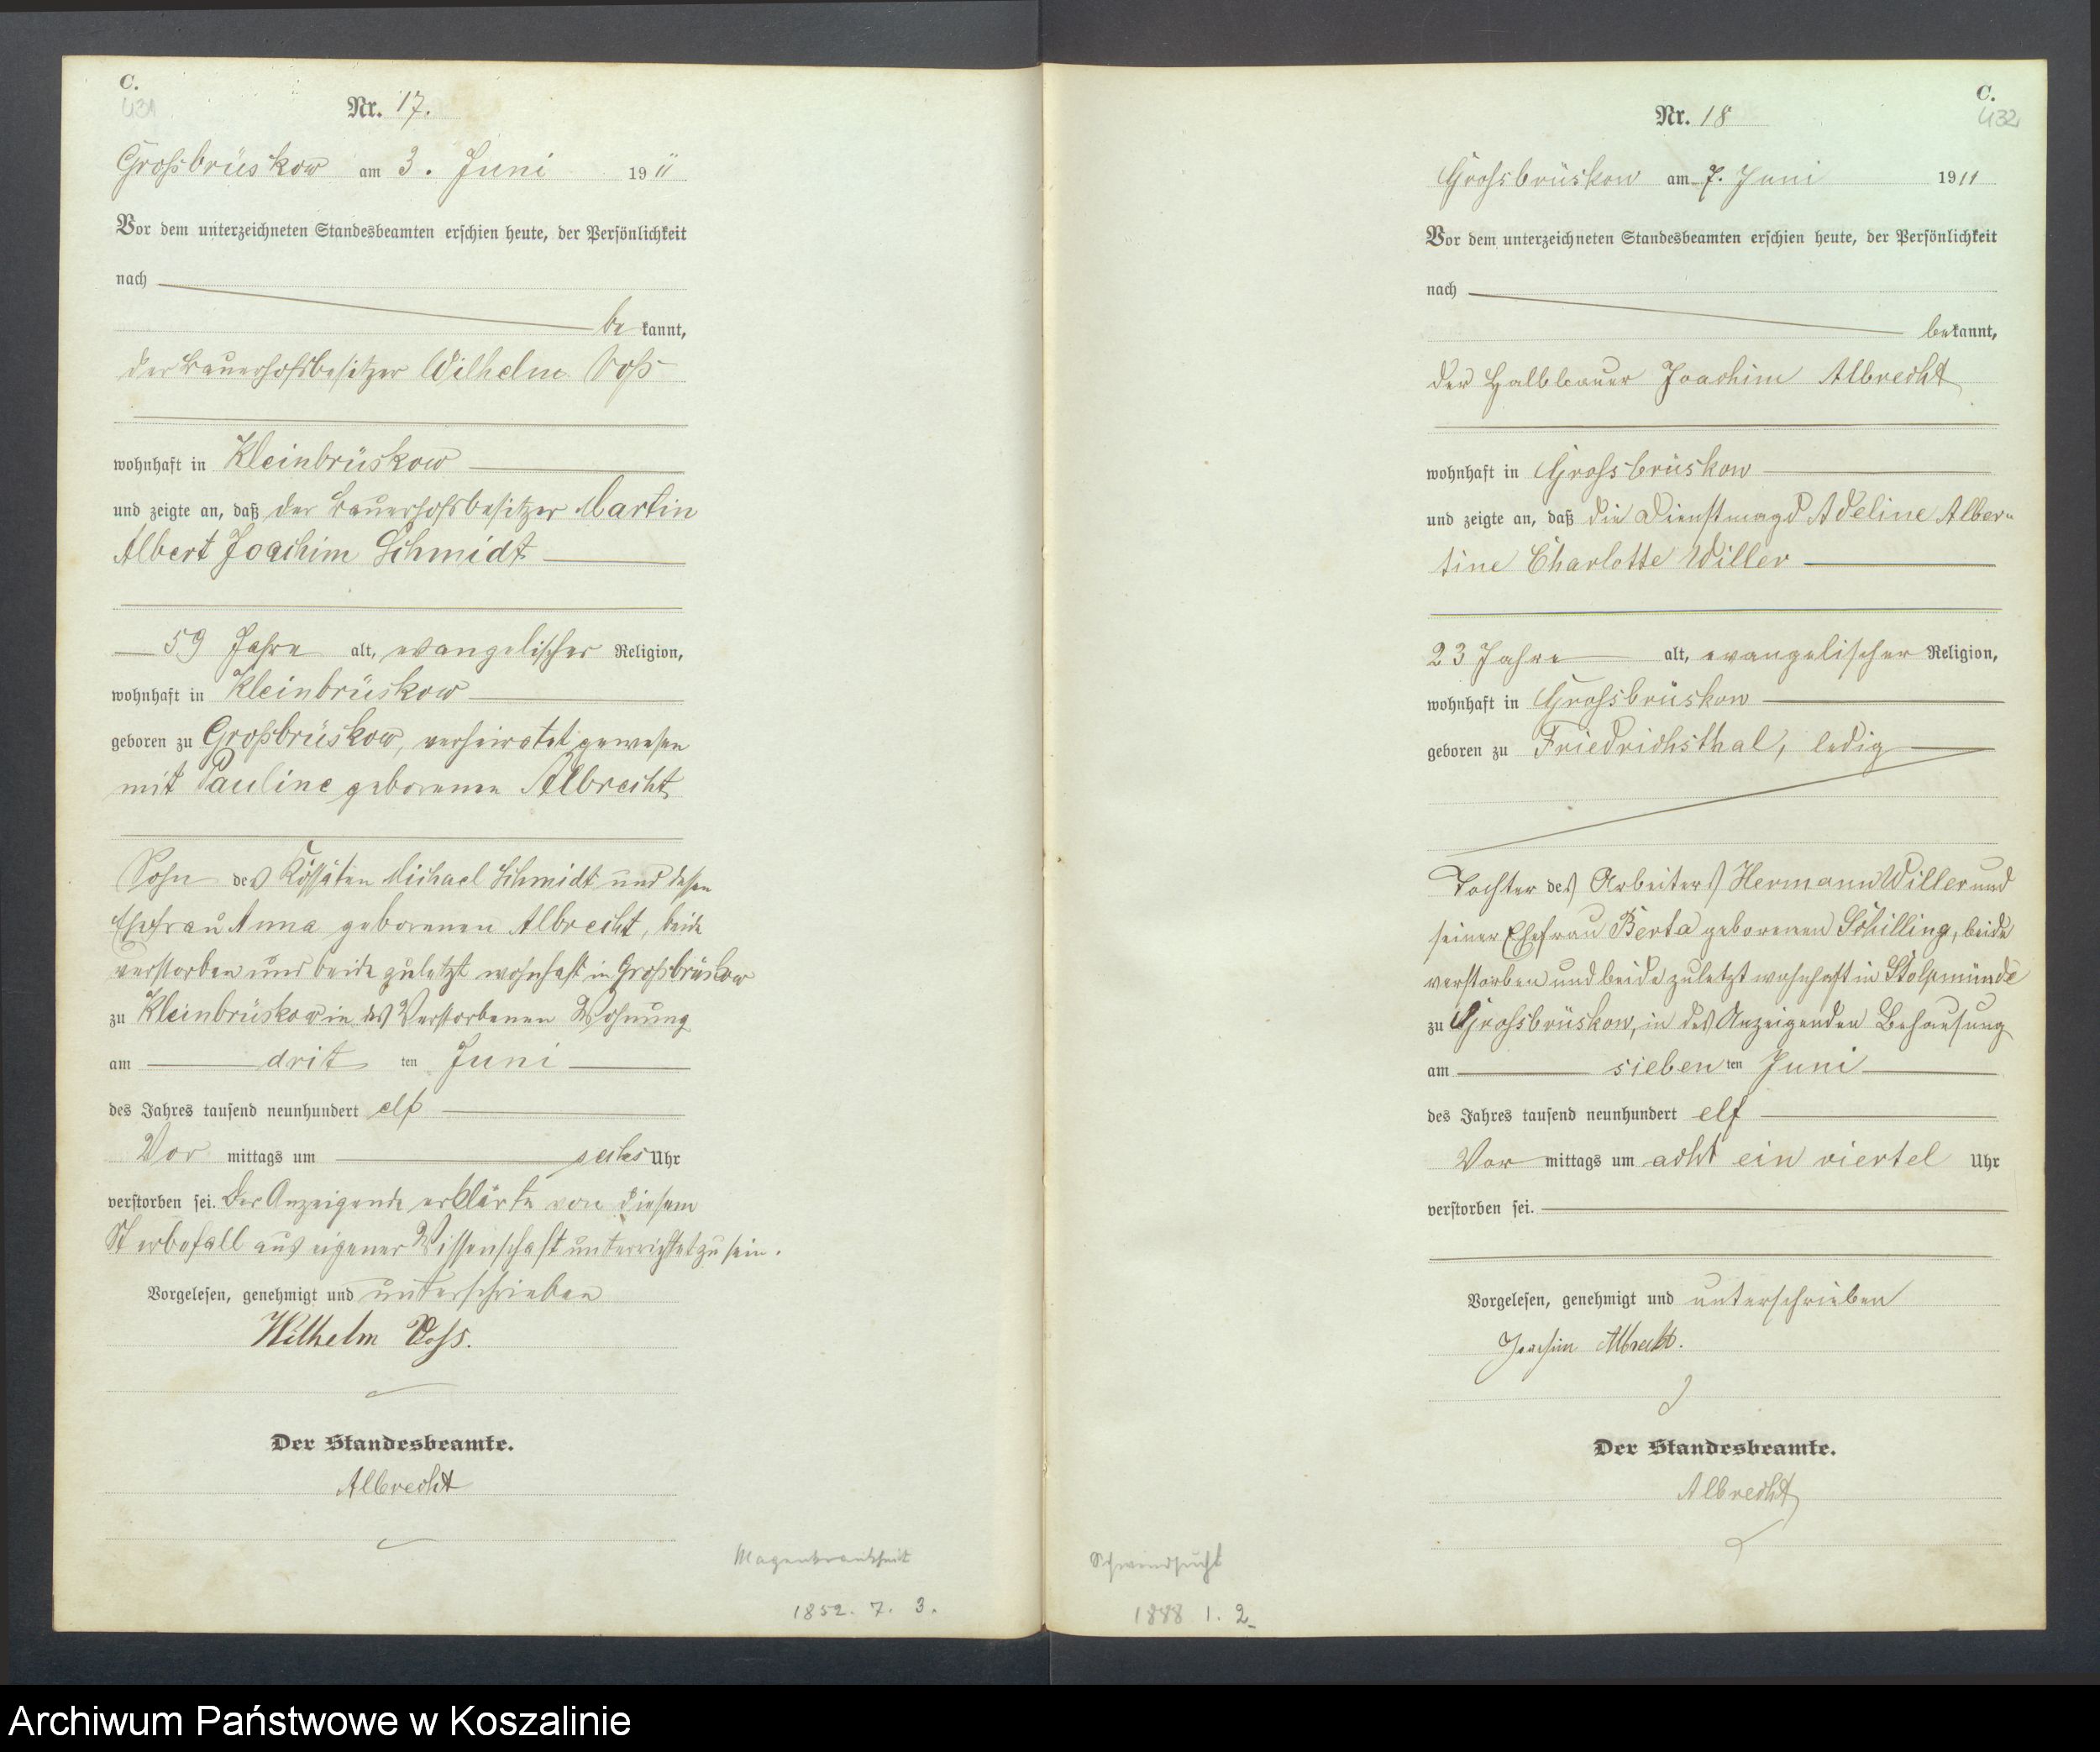 C.
431
Nr. 17.
Großbrüskow am 3. Juni 19 11
Vor dem unterzeichneten Standesbeamten erschien heute, der Persönlichkeit
nach
be kannt,
der Bauerhofsbesitzer Wilhelm Voß
wohnhaft in Kleinbrüskow
und zeigte an, daß der Bauerhofsbesitzer Martin
Albert Joachim Schmidt
59 Jahre alt, evangelischer Religion,
wohnhaft in Kleinbrüskow
geboren zu Großbrüskow, verheiratet gewesen
mit Pauline geborenen Albrecht
Sohn des Kossäten Michael Schmidt und dessen
Ehefrau Anna geborenen Albrecht, beide
verstorben und beide zuletzt wohnhaft in Großbrüskow
zu Kleinbrüskow in des Verstorbenen Wohnung
am drit ten Juni
des Jahres tausend neunhundert elf
Vor mittags um sechs Uhr
verstorben sei. Der Anzeigende erklärte von diesem
Sterbefall aus eigener Wissenschaft unterrichtet zu sein.
Vorgelesen, genehmigt und unterschrieben
Wilhelm Voss.
Der Standesbeamte.
Albrecht
Magenkrankheit
1852. 7. 3.
C.
432
Nr. 18
Grossbrüskow am 7. Juni 1911
Vor dem unterzeichneten Standesbeamten erschien heute, der Persönlichkeit
nach
bekannt,
der Halbbauer Joachim Albrecht
wohnhaft in Grossbrüskow
und zeigte an, daß die Dienstmagd Adeline Alber-
tine Charlotte Willer
23 Jahre alt, evangelischer Religion,
wohnhaft in Grossbrüskow
geboren zu Friedrichsthal, ledig
Tochter des Arbeiters Hermann Willer und
seiner Ehefrau Berta geborenen Schilling, beide
verstorben und beide zuletzt wohnhaft in Stolpmünde
zu Grossbrüskow, in des Anzeigenden Behausung
am sieben ten Juni
des Jahres tausend neunhundert elf
Vor mittags um acht ein viertel Uhr
verstorben sei.
Vorgelesen, genehmigt und unterschrieben
Joachim Albrecht.
Der Standesbeamte.
Albrecht
Schwindsucht
1888 1. 2.
Archiwum Państwowe w Koszalinie